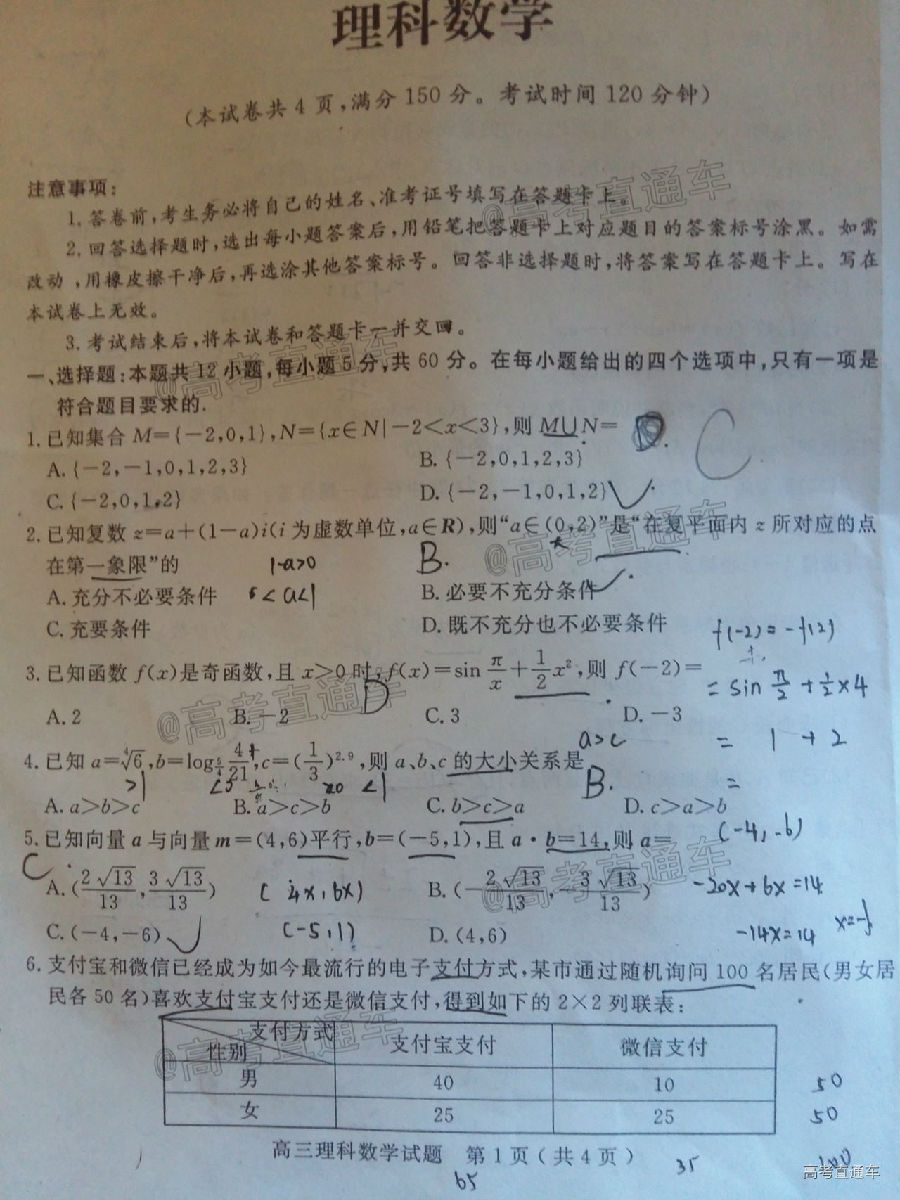 理科数学
(本试卷共4页,满分150分。考试时间120分钟)
注意事项:
1.答卷前,考生务必将自己的姓名、准考证号填写在答题卡上。
2.回答选择题时,选出每小题答案后,用铅笔把答题卡上对应题目的答案标号涂黑。如需
改动,用橡皮擦干净后,再选涂其他答案标号。回答非选择题时,将答案写在答题卡上。写在
本试卷上无效。
3.考试结束后,将本试卷和答题卡一并交回。
一、选择题:本题共12小题,每小题5分,共60分。在每小题给出的四个选项中,只有一项是
符合题目要求的.
1.已知集合M={-2,0,1},N={x∈N|-2<x<3},则M∪N= C
A.{-2,-1,0,1,2,3} B.{-2,0,1,2,3}
C.{-2,0,1,2} D.{-2,-1,0,1,2}
2.已知复数z=a+(1-a)i(i为虚数单位,a∈R),则“a∈(0,2)”是“在复平面内z所对应的点
在第一象限”的 1-a>0 B.
A.充分不必要条件 0<a<1 B.必要不充分条件
C.充要条件 D.既不充分也不必要条件 f(-2)=-f(2)
3.已知函数f(x)是奇函数,且x>0时,f(x)=sin π/x+1/2 x²,则f(-2)= =sin π/2+1/2×4
A.2 B.-2 D C.3 D.-3
a>c = 1+2
4.已知a=∜6,b=log5/4 4/21,c=(1/3)^2.9,则a、b、c的大小关系是 B. =
A.a>b>c >1 B.a>c>b <1 C.b>c>a D.c>a>b
5.已知向量a与向量m=(4,6)平行,b=(-5,1),且a·b=14,则a= (-4,-6)
C
A.(2√13/13,3√13/13) (4x,6x) B.(-2√13/13,-3√13/13) -20x+6x=14
C.(-4,-6) (-5,1) D.(4,6) -14x=14
6.支付宝和微信已经成为如今最流行的电子支付方式,某市通过随机询问100名居民(男女居
民各50名)喜欢支付宝支付还是微信支付,得到如下的2×2列联表:
支付方式 性别 支付宝支付 微信支付
男 40 10 50
女 25 25 50
高三理科数学试题 第1页(共4页) 35 100
65
@高考直通车
@高考直通车
@高考直通车
@高考直通车
@高考直通车
@高考直通车
高考直通车